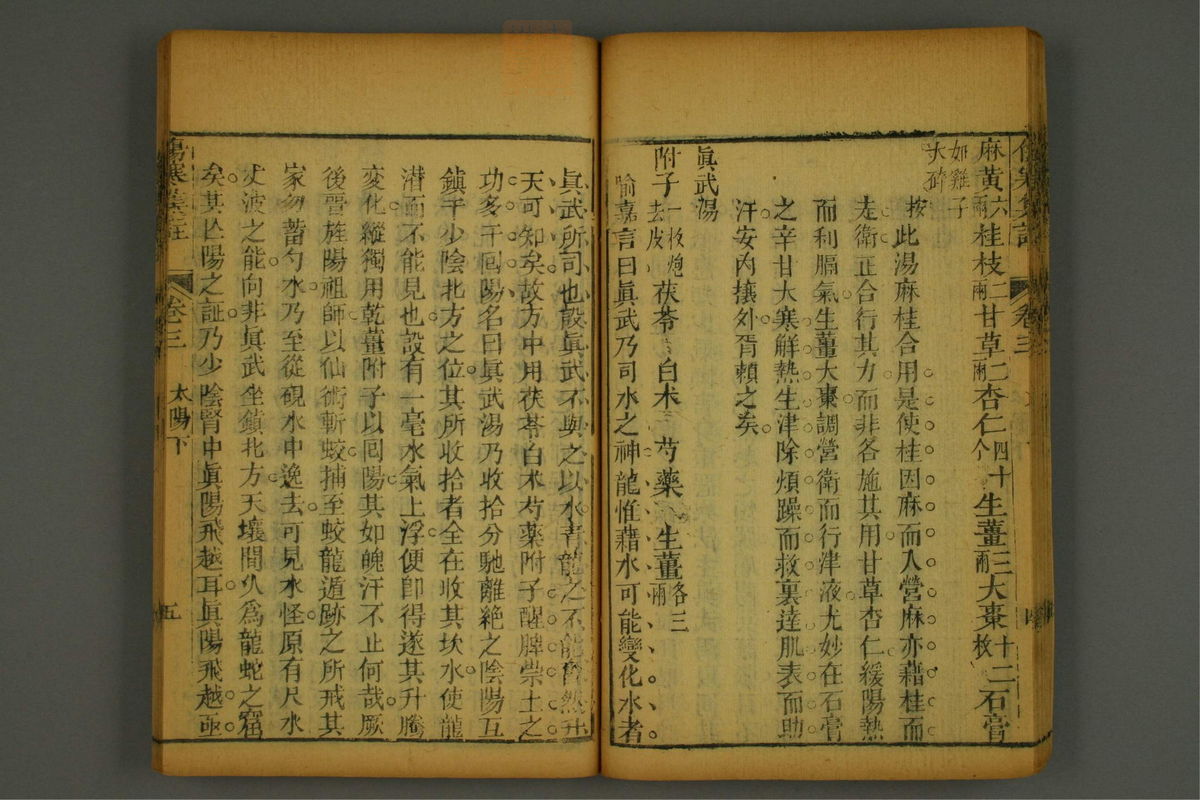 傷寒集註 卷三
麻黃六兩桂枝二兩甘草二兩杏仁四十个生薑三兩大棗十二枚石膏
如雞子大碎
按此湯麻桂合用是使桂因麻而入營麻亦藉桂而
走衛正合行其力而非各施其用甘草杏仁緩陽熱
而利膈氣生薑大棗調營衛而行津液尤妙在石膏
之辛甘大寒解熱生津除煩躁而救裏達肌表而助
汗安內攘外胥賴之矣
眞武湯
附子一枚炮去皮茯苓 白朮 芍藥 生薑各三兩
喻嘉言曰眞武乃司水之神龍惟藉水可能變化水者
眞武所司也設眞武不與之以水靑龍之不能奮然升
天可知矣故方中用茯苓白朮芍藥附子醒脾崇土之
功多于囘陽名曰眞武湯乃收拾分馳離絶之陰陽互
鎮于少陰北方之位其所收拾者全在收其坎水使龍
潛而不能見也設有一毫水氣上浮便卽得遂其升騰
變化縱獨用乾薑附子以囘陽其如魄汗不止何哉厥
後晉旌陽祖師以仙術斬蛟捕至蛟龍遁跡之所戒其
家勿蓄勺水乃至從硯水中逸去可見水怪原有尺水
丈波之能向非眞武坐鎮北方天壤間久爲龍蛇之窟
矣其㐲陽之証乃少陰腎中眞陽飛越耳眞陽飛越亟
傷寒集註 卷三 太陽下 五